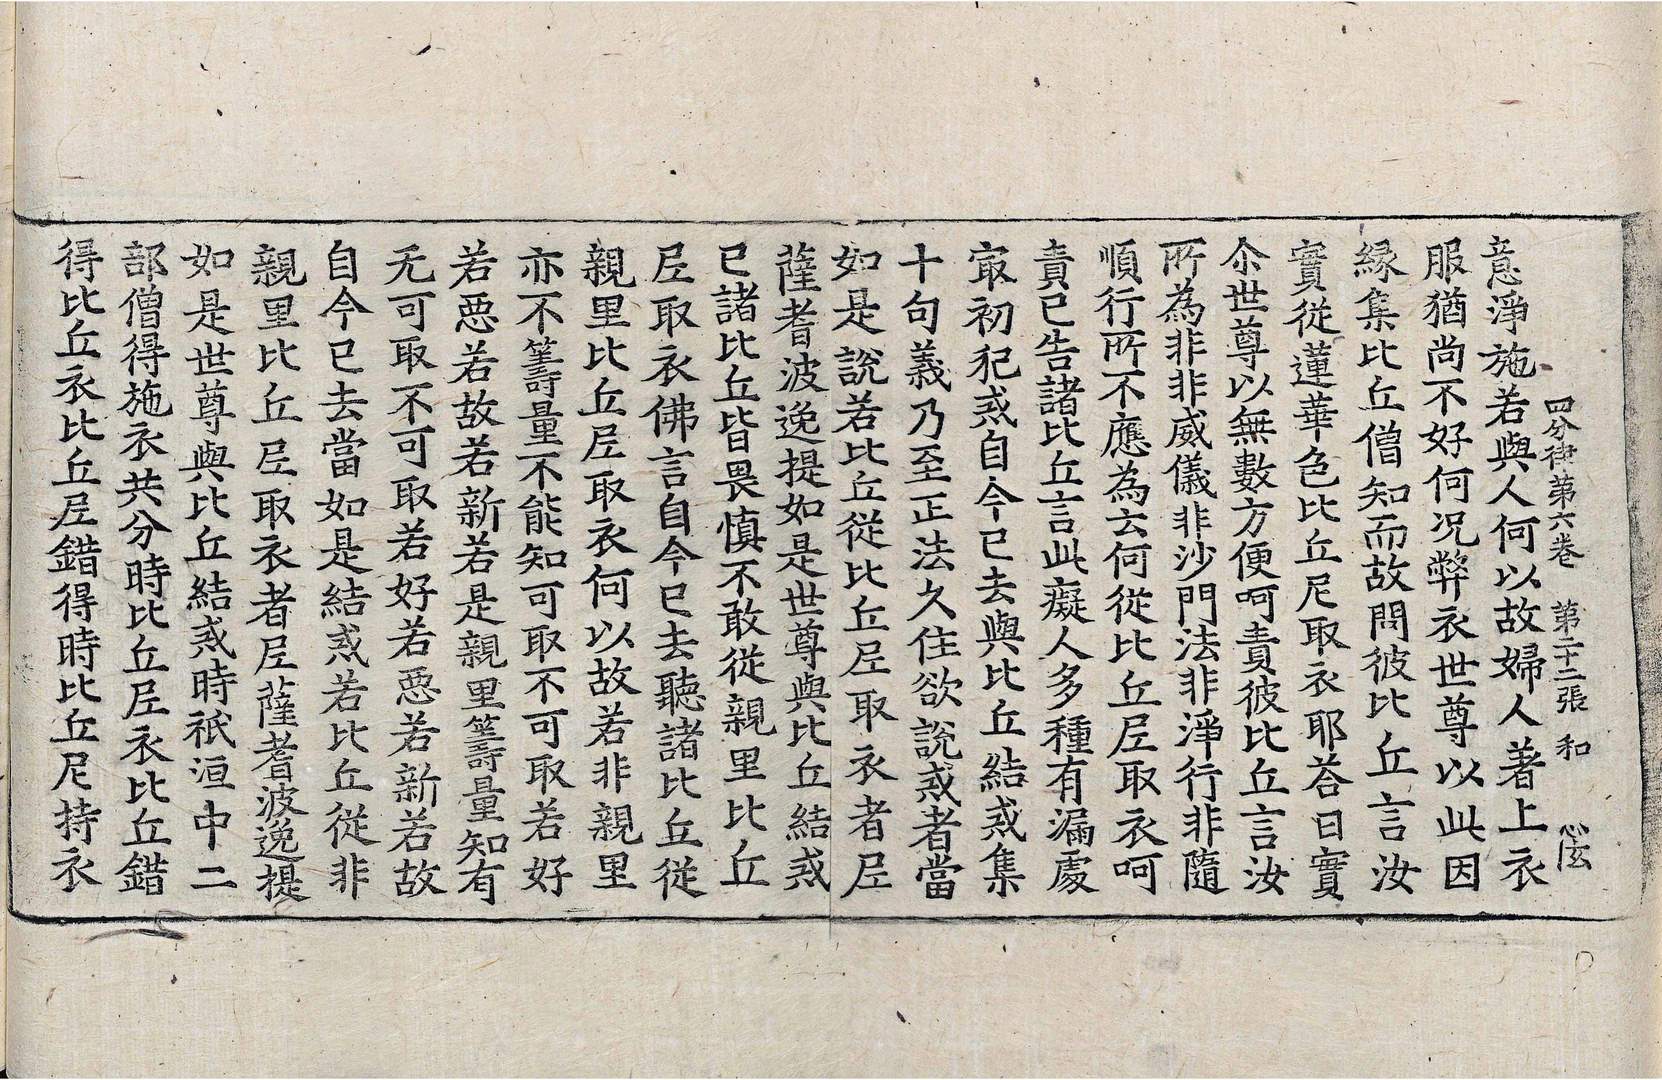 四分律第六卷 第二十二張 和
意淨施若與人何以故婦人著上衣
服猶尚不好何況弊衣世尊以此因
緣集比丘僧知而故問彼比丘言汝
實從蓮華色比丘尼取衣耶荅曰實
尒世尊以無數方便呵責彼比丘言汝
所為非非威儀非沙門法非淨行非隨
順行所不應為云何從比丘尼取衣呵
責已告諸比丘言此癡人多種有漏處
㝡初犯戒自今已去與比丘結戒集
十句義乃至正法久住欲說戒者當
如是說若比丘從比丘尼取衣者尼
薩耆波逸提如是世尊與比丘結戒
已諸比丘皆畏慎不敢從親里比丘
尼取衣佛言自今已去聽諸比丘從
親里比丘尼取衣何以故若非親里
亦不籌量不能知可取不可取若好
若惡若故若新若是親里籌量知有
无可取不可取若好若惡若新若故
自今已去當如是結戒若比丘從非
親里比丘尼取衣者尼薩耆波逸提
如是世尊與比丘結戒時祇洹中二
部僧得施衣共分時比丘尼衣比丘錯
得比丘衣比丘尼錯得時比丘尼持衣